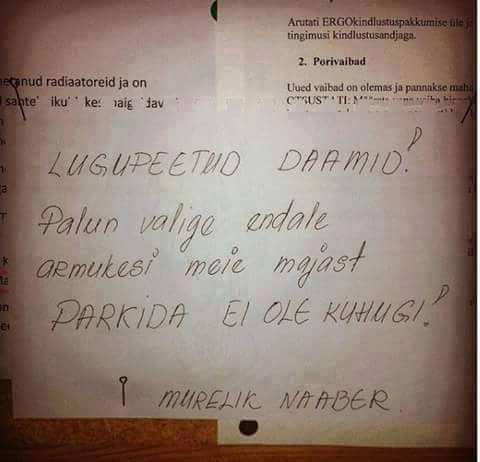 Arutati ERGOkindlustuspakkumise üle
tingimusi kindlustusandjaga.
2. Porivaibad
Uued vaibad on olemas ja pannakse maha
radiaatoreid ja on
LUGUPEETUD DAAMID!
Palun valige endale
armukesi meie majast
PARKIDA EI OLE KUHUGI!
MURELIK NAABER